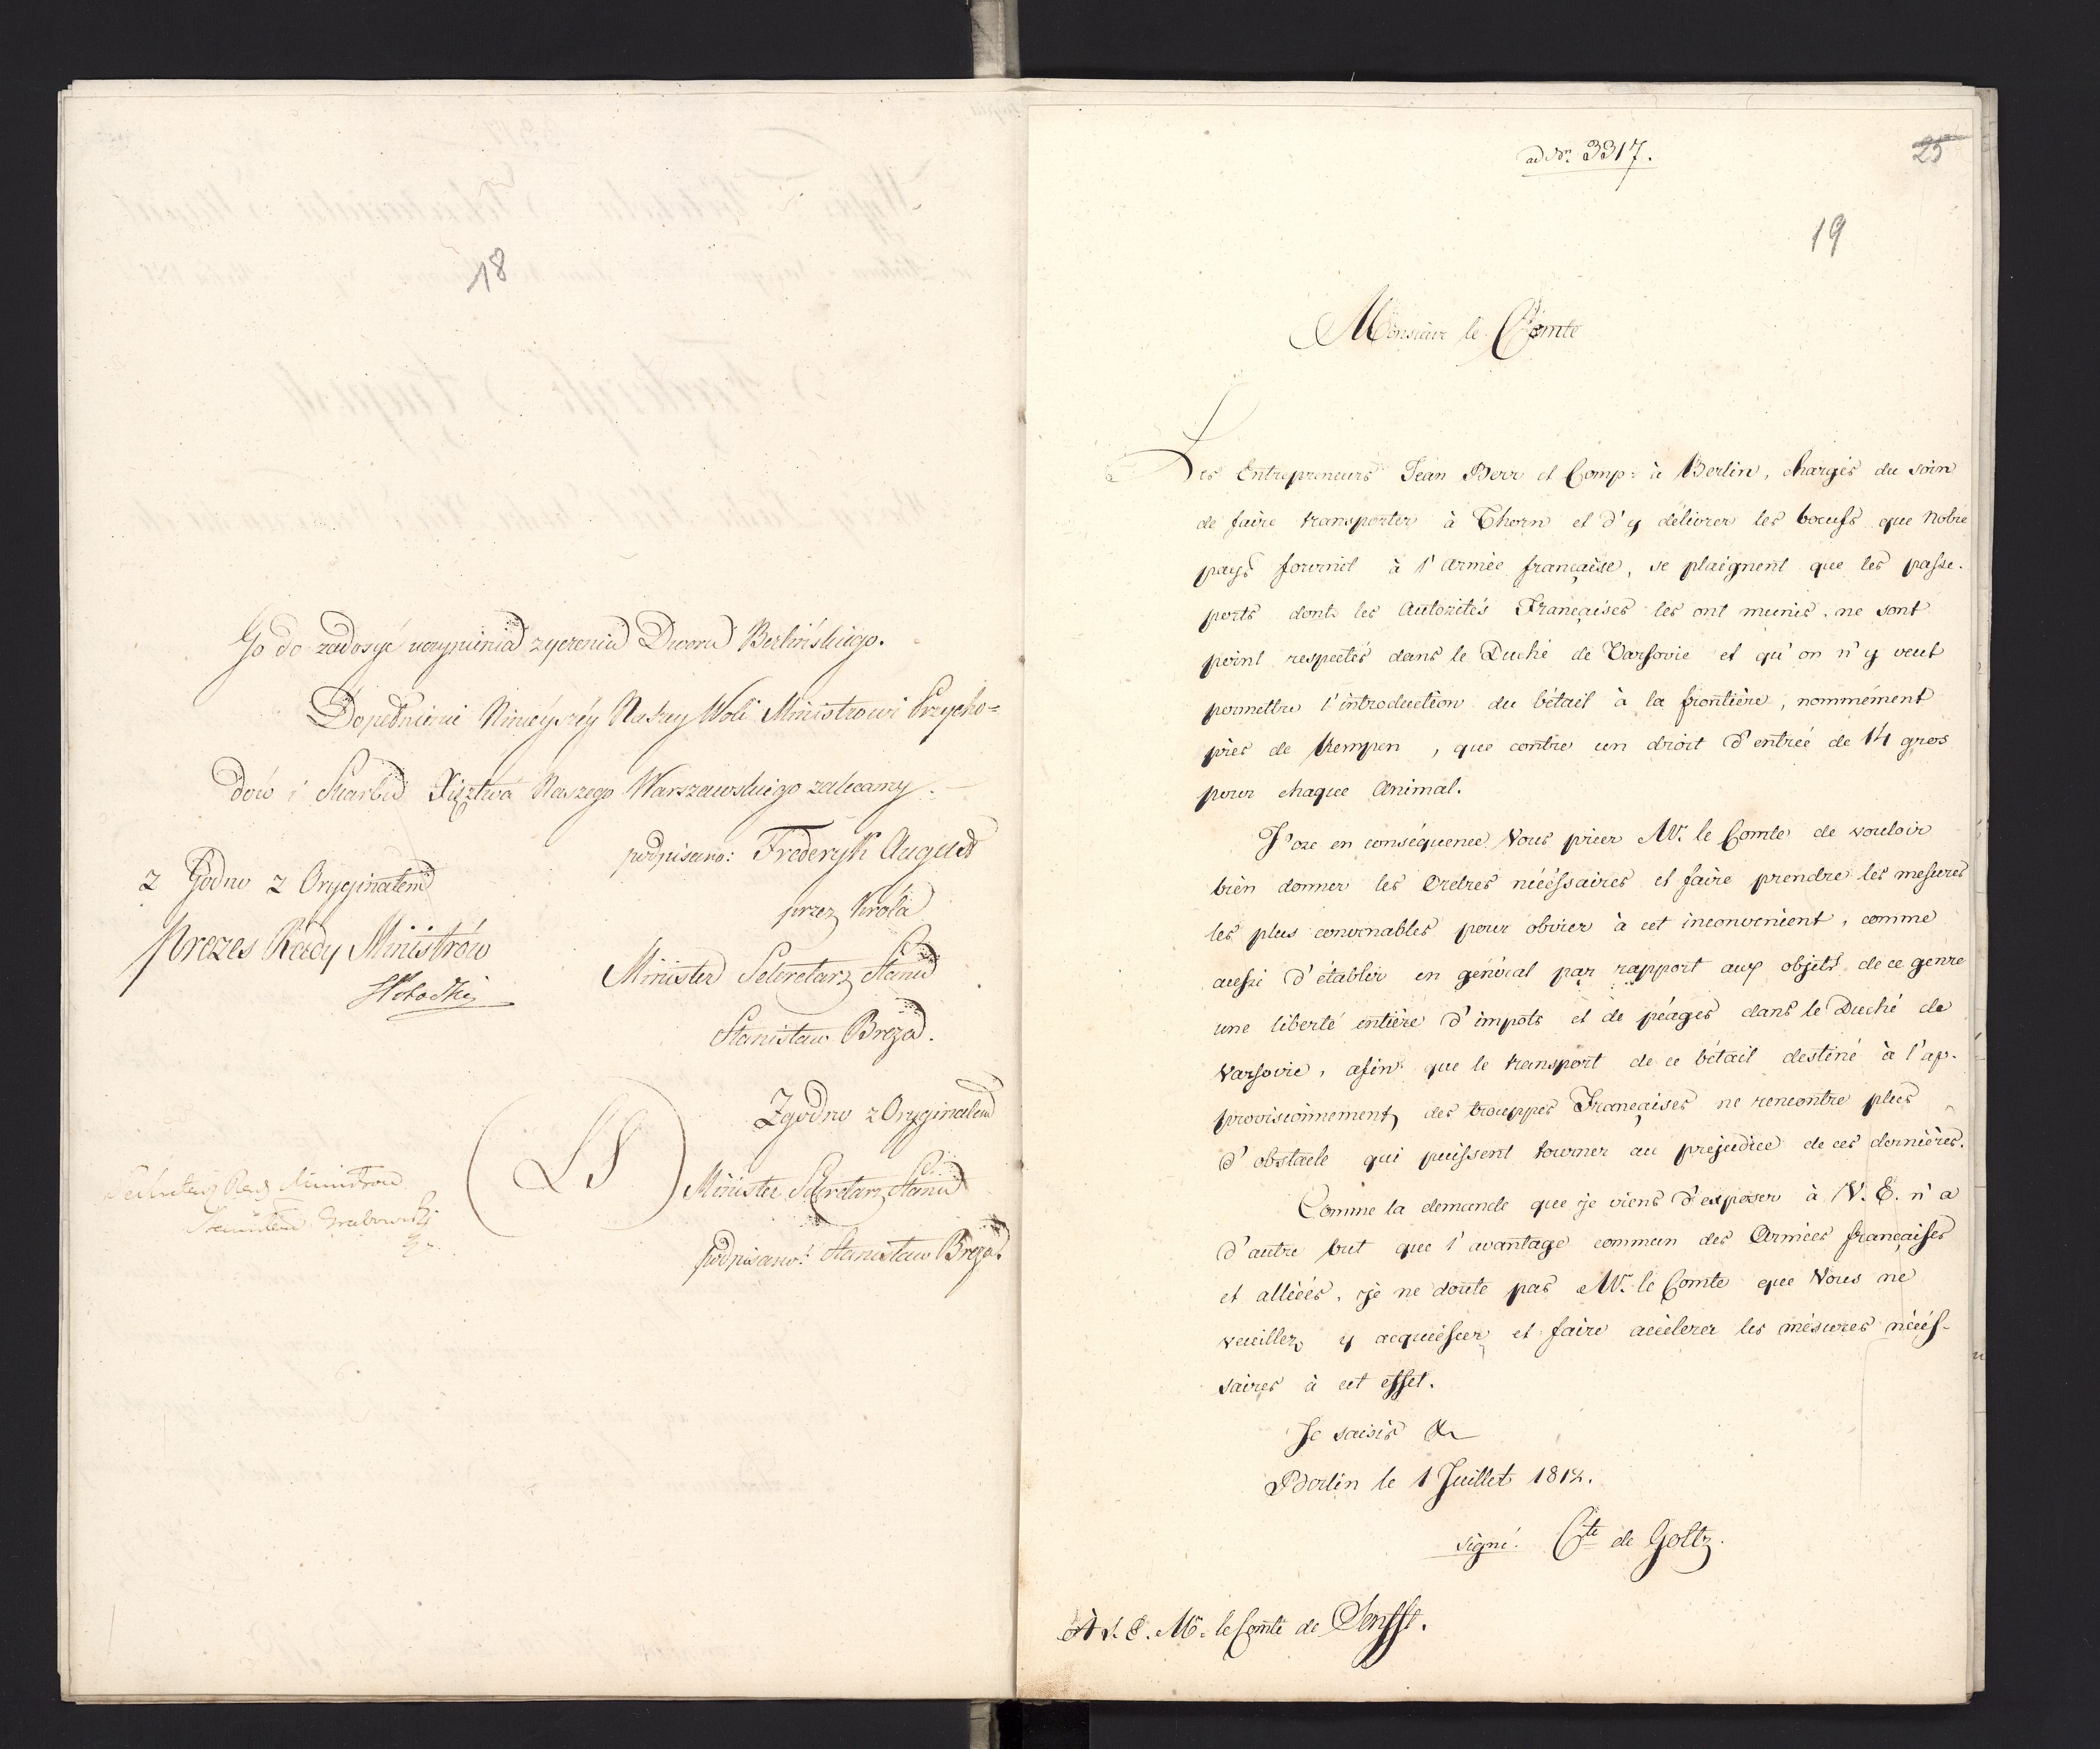 18
Go do zadosyć uczynienia życzeniu Dworu Berlińskiego.
Dopełnienie Ninieyszéy Naszey Woli Ministrowi Przycho=
dów i Skarbu Xięztwa Naszego Warszawskiego zalecamy.
podpisano: Frederyk August
przez Króla
Minister Sekretarz Stanu
Stanisław Breza.
Zgodno z Oryginałem
Prezes Rady Ministrów
Zgodno z Oryginałem
LS
Minister Sekretarz Stanu
podpisano: Stanisław Breza.
Sekretarz Rady Ministrów
Stanisław Grabowski
ad No. 3317.
25
19
Monsieur le Comte
Les Entrepreneurs Jean Berr et Comp: à Berlin, chargés du soin
de faire transporter à Thorn et d'y délivrer les boeufs que Notre
pays fournit à l'Armée française, se plaignent que les passe-
ports dont les Autorités Françaises les ont munis, ne sont
point respectés dans le Duché de Varsovie et qu'on n'y veut
permettre l'introduction du bétail à la frontière, nommément
près de Kempen, que contre un droit d'entrée de 14 gros
pour chaque Animal.
J'ose en conséquence Vous prier Mr. le Comte de vouloir
bien donner les Ordres nécéssaires et faire prendre les mesures
les plus convenables pour obvier à cet inconvenient, comme
aussi d'établir en général par rapport aux objets de ce genre
une liberté entière d'impots et de péages dans le Duché de
Varsovie, afin que le transport de ce bétail destiné à l'ap-
provisionnement des trouppes Françaises ne rencontre plus
d'obstacle qui puissent tourner au préjudice de ces dernières.
Comme la demande que je viens d'exposer à V. E. n'a
d'autre but que l'avantage commun des Armées françaises
et alliées, je ne doute pas Mr. le Comte que Vous ne
veuillez y acquiéscer et faire accélerer les mésures nécés-
saires à cet effet.
Je saisis &
Berlin le 1 Juillet 1812.
signé. Cte de Goltz.
À S. E. Mr. le Comte de Senfft.